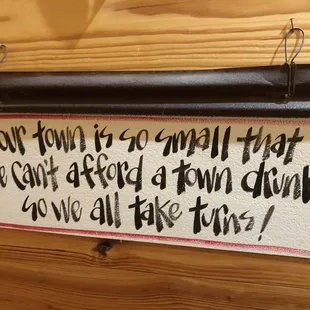 our town is so small that
we can't afford a town drunk
so we all take turns!